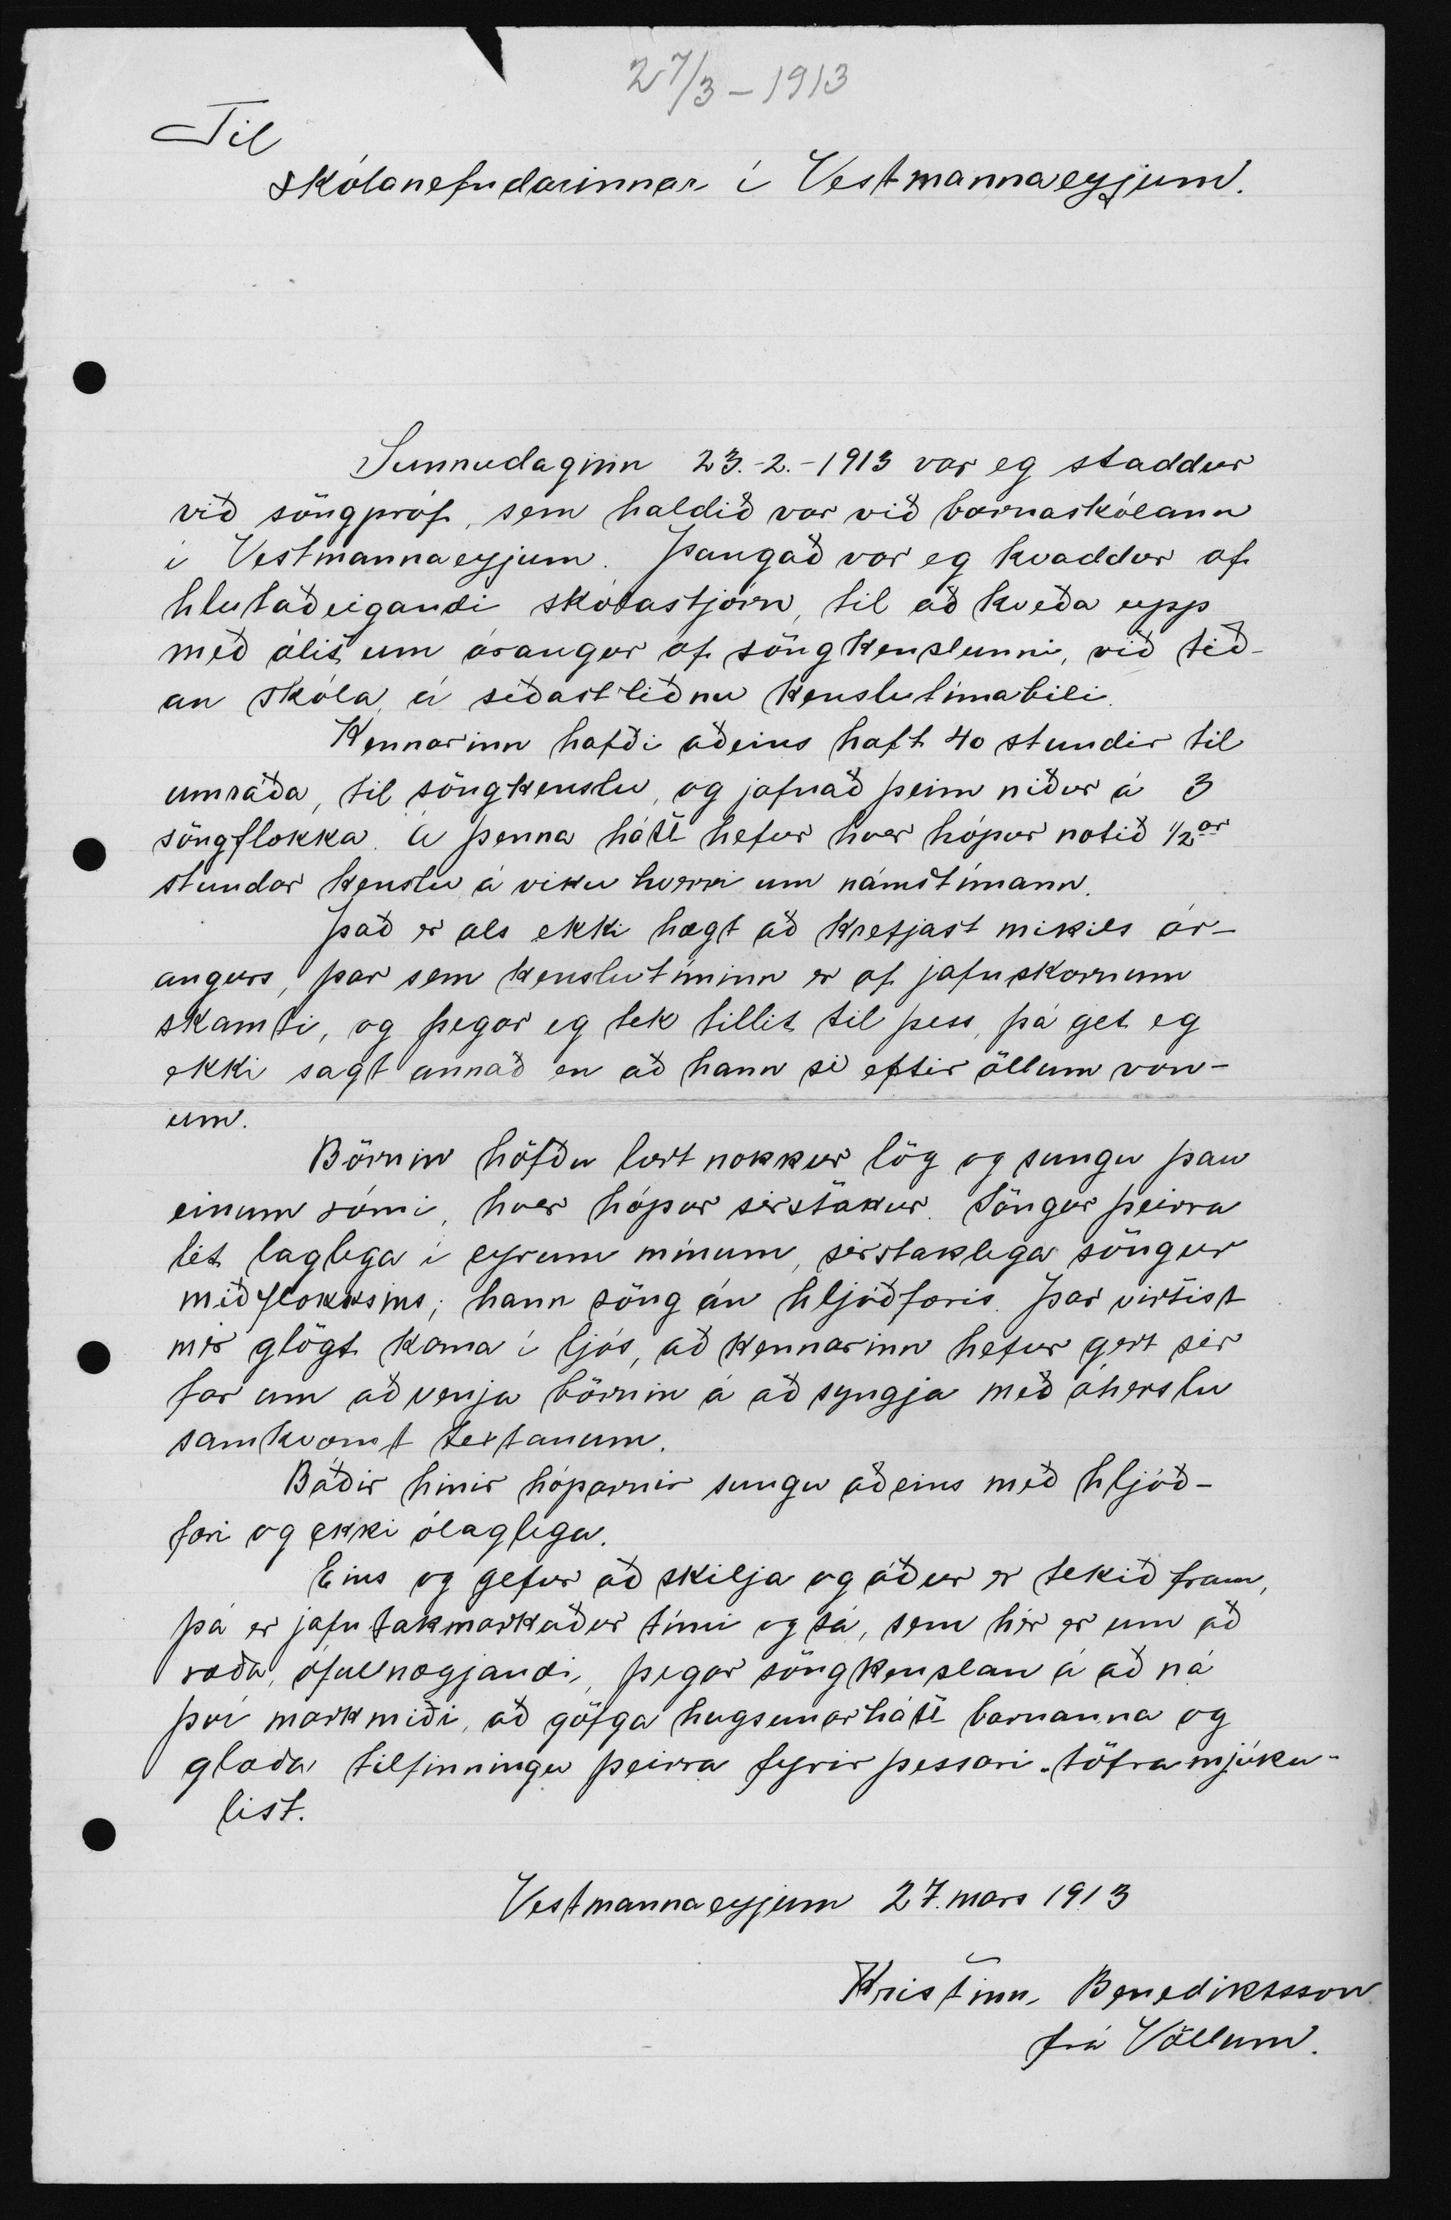 27/3 - 1913
Til
skólanefndarinnar í Vestmannaeyjum.
Sunnudaginn 23.-2.-1913 var eg staddur
við söngpróf, sem haldið var við barnaskólann
í Vestmannaeyjum. Þangað var eg kvaddur af
hlutaðeigandi skólastjórn, til að kveða upp
með álit um árangur af söngkenslunni, við téð-
an skóla, á síðastliðnu kenslutímabili.
Kennarinn hafði aðeins haft 40 stundir til
umráða, til söngkenslu, og jafnað þeim niður á 3
söngflokka. Á þenna hátt hefur hver hópur notið 1/2ar
stundar kenslu á viku hverri um námstímann.
Það er als ekki hægt að krefjast mikils ár-
angurs, þar sem kenslutíminn er af jafnskornum
skamti, og þegar eg tek tillit til þess, þá get eg
ekki sagt annað en að hann sé eftir öllum von-
um.
Börnin höfðu lært nokkur lög og sungu þau
einum rómi, hver hópur sérstakur. Söngur þeirra
lét laglega í eyrum mínum, sérstaklega söngur
miðflokksins; hann söng án hljóðfæris. Þar virtist
mér glögt koma í ljós, að kennarinn hefur gert sér
far um að venja börnin á að syngja með áherslu
samkvæmt textanum.
Báðir hinir hóparnir sungu aðeins með hljóð-
færi og ekki ólaglega.
Eins og gefur að skilja og áður er tekið fram,
þá er jafn takmarkaður tími og sá, sem hér er um að
ræða, ófullnægjandi, þegar söngkenslan á að ná
því markmiði, að göfga hugsunarhátt barnanna og
glæða tilfinningu þeirra fyrir þessari „töframjúku"
list.
Vestmannaeyjum 27. mars 1913
Kristinn Benediktsson
frá Völlum.